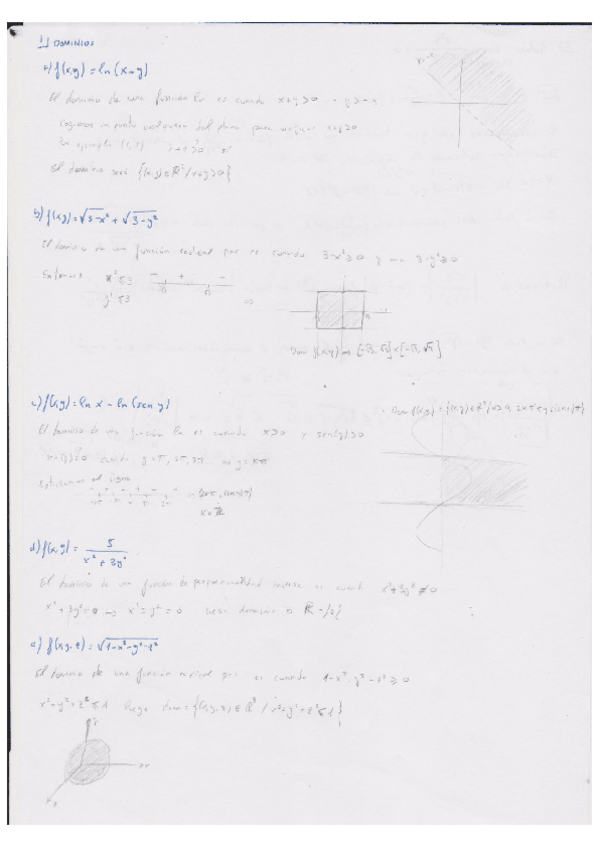 1] DOMINIOS
a) f(x,y) = ln(x+y)
El dominio de una función ln es cuando x+y>0 → y>-x
Cogemos un punto cualquiera del plano para verificar x+y>0
En ejemplo (1,1) 1+1>0
El dominio será {(x,y)∈ℝ²/x+y>0}
b) f(x,y)=√3-x² + √3-y²
El dominio de una función radical par es cuando 3-x²≥0 y 3-y²≥0
x²≤3
y²≤3
Dom f(x,y) = [-√3,√3]x[-√3,√3]
c) f(x,y)=ln x - ln(sen y)
El dominio de una función ln es cuando x>0 y sen(y)>0
sen(y)=0 cuando y=π, 2π, 3π y=kπ
Estudiamos el signo
d) f(x,y)= 5 / x² + 3y²
El dominio de una función de proporcionalidad inversa es cuando x²+3y²≠0
x²+3y²=0 → x²=y²=0 dominio
e) f(x,y,z)=√1-x²-y²-z²
El dominio de una función radical par es cuando 1-x²-y²-z²≥0
x²+y²+z²≤1 luego dom={(x,y,z)∈ℝ³/x²+y²+z²≤1}